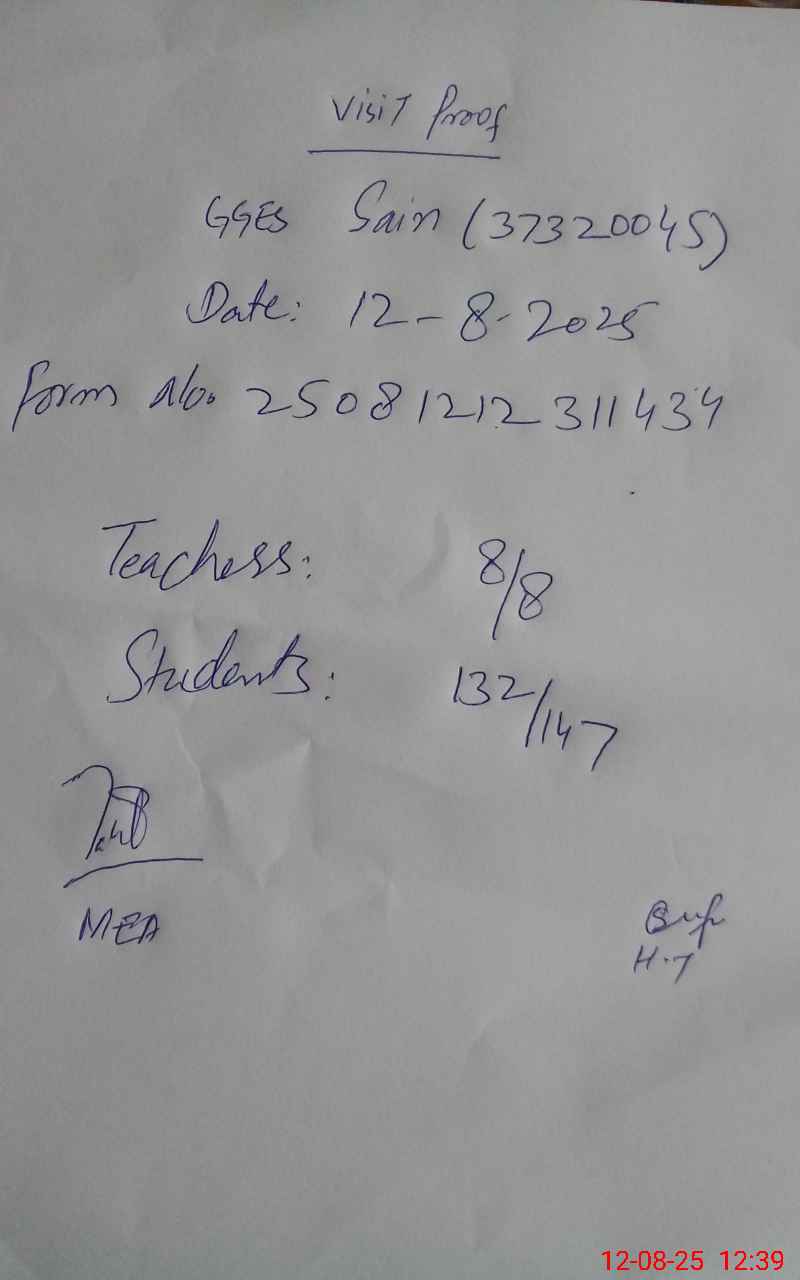 Visit Proof
GGES Sain (37320045)
Date: 12-8-2025
Form No. 25081212311434
Teachers: 8/8
Students: 132/147
MEA
H.T
12-08-25 12:39